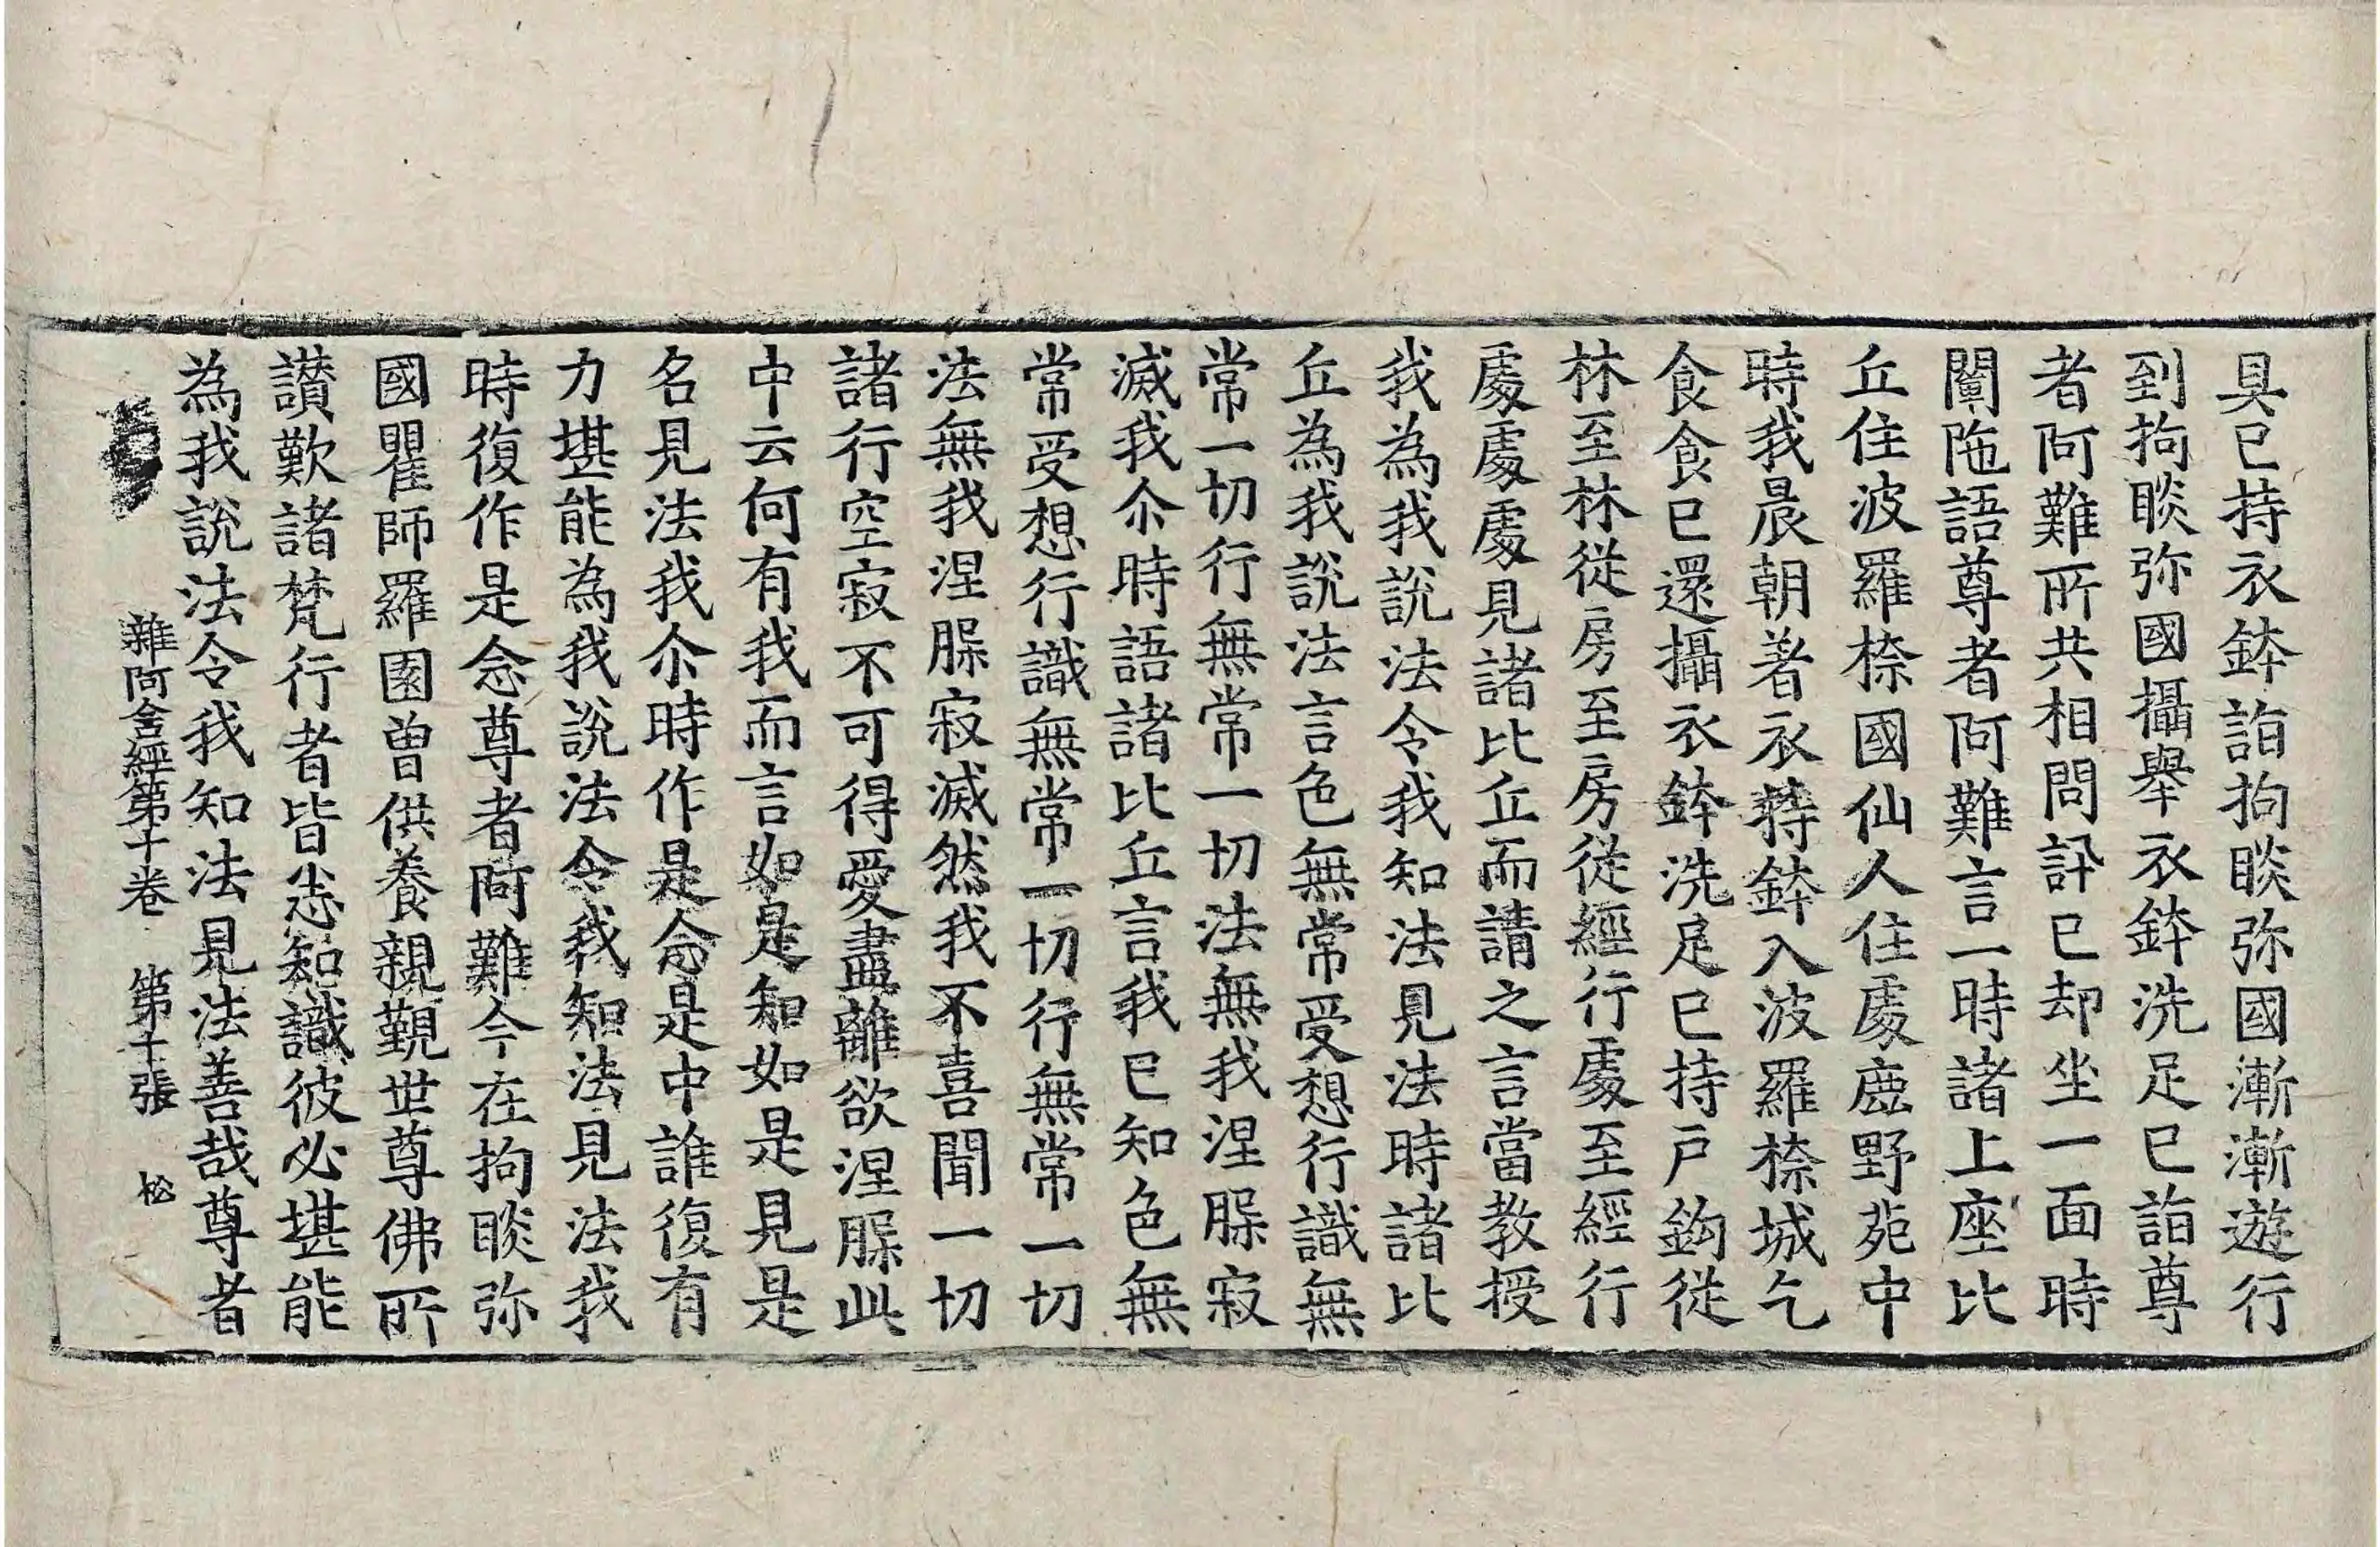 具已持衣鉢詣拘睒弥國漸漸遊行
到拘睒弥國攝舉衣鉢洗足已詣尊
者阿難所共相問訊已却坐一面時
闡陁語尊者阿難言一時諸上座比
丘住波羅㮈國仙人住處鹿野苑中
時我晨朝著衣持鉢入波羅㮈城乞
食食已還攝衣鉢洗足已持戶鉤從
林至林從房至房從經行處至經行
處處處見諸比丘而請之言當教授
我為我說法令我知法見法時諸比
丘為我說法言色無常受想行識無
常一切行無常一切法無我涅膎寂
滅我尒時語諸比丘言我已知色無
常受想行識無常一切行無常一切
法無我涅膎寂滅然我不喜聞一切
諸行空寂不可得愛盡離欲涅膎此
中云何有我而言如是知如是見是
名見法我尒時作是念是中誰復有
力堪能為我說法令我知法見法我
時復作是念尊者阿難今在拘睒弥
國瞿師羅園曾供養親覲世尊佛所
讃歎諸梵行者皆悉知識彼必堪能
為我說法令我知法見法善哉尊者
雜阿含經第十卷 第十張 松